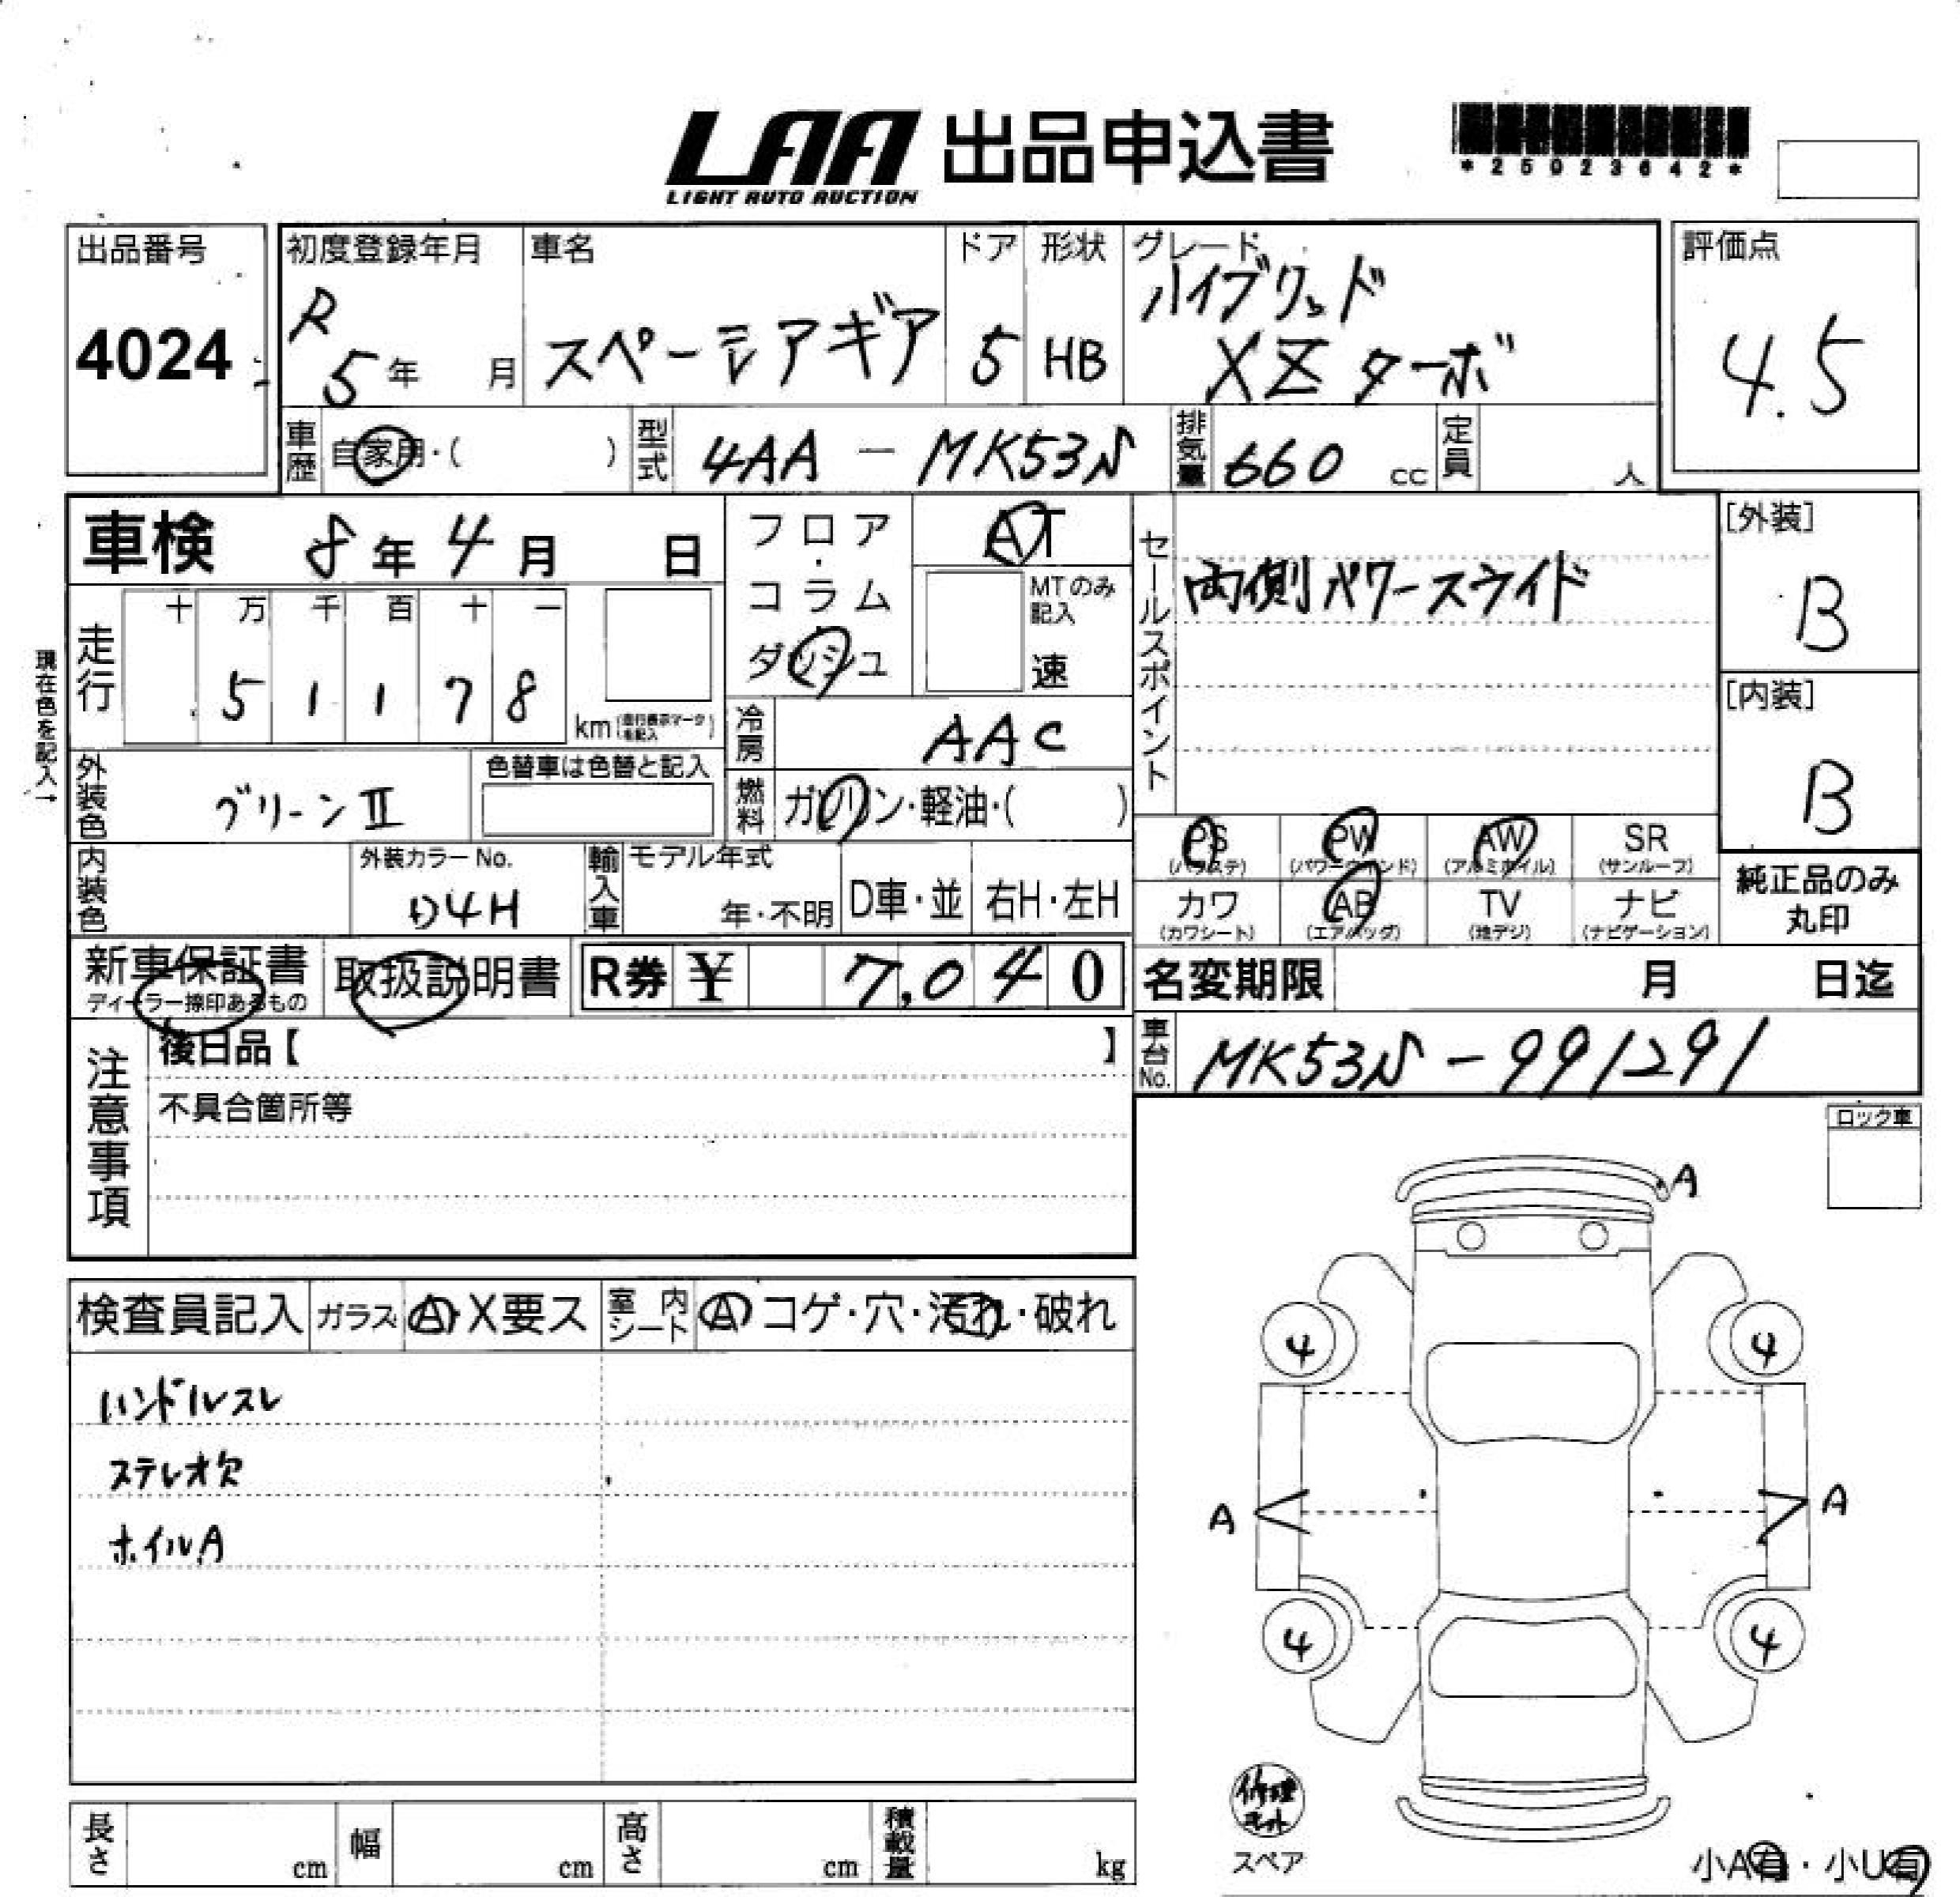 LAA 出品申込書
LIGHT AUTO AUCTION
*25023642*
出品番号
4024
初度登録年月
R 5年 月
車名
スペーシアギア
ドア
5
形状
HB
グレード
ハイブリッド
XZ ターボ
評価点
4.5
車歴 自家用・( )
型式 4AA - MK53S
排気量 660 cc
定員 人
車検 8年 4月 日
フロア・コラム・ダッシュ
AT
MTのみ記入
速
セールスポイント
両側パワースライド
[外装]
B
[内装]
B
現在色を記入→
走行
十 万 千 百 十 一
5 1 1 7 8
km
冷房 AAC
外装色 グリーンII
色替車は色替と記入
燃料 ガソリン・軽油・( )
内装色
外装カラーNo.
D4H
輸入車 モデル年式
年・不明
D車・並
右H・左H
PS PW AW SR
(パワステ) (パワーウインド) (アルミホイル) (サンルーフ)
カワ AB TV ナビ
(カワシート) (エアバッグ) (地デジ) (ナビゲーション)
純正品のみ
丸印
新車保証書
ディーラー捺印あるもの
取扱説明書
R券 ¥ 7,040
名変期限 月 日迄
車台No. MK53S-991291
注意事項
後日品【 】
不具合箇所等
ロック車
検査員記入 ガラス A・X要ス 室内シート A コゲ・穴・汚れ・破れ
ハンドルスレ
ステレオ欠
ホイルA
A
4 4
A A
4 4
修理キット
スペア
小A有・小U有
長さ cm 幅 cm 高さ cm 積載量 kg